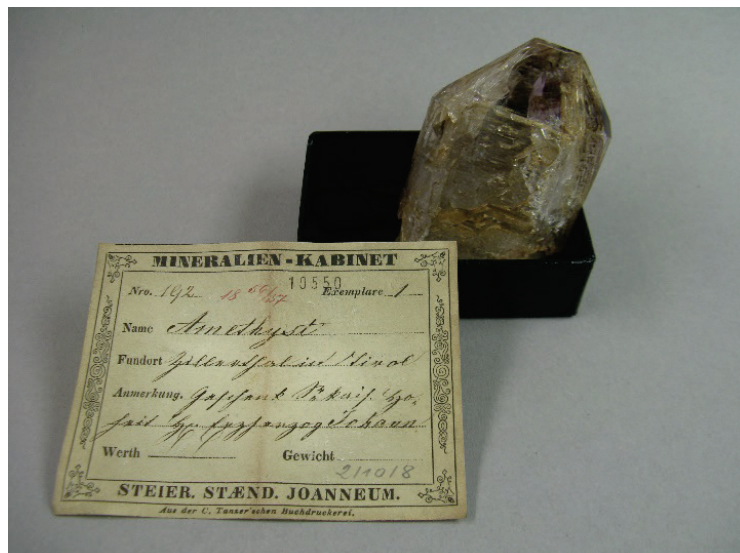 MINERALIEN-KABINET
Nro. 192 18 56/57 10550 Exemplare 1
Name Amethyst
Fundort Zillerthal in Tirol
Anmerkung. Geschenk Sr kais. Ho-
heit Erzherzog Johann
Werth Gewicht
211018
STEIER. STÆND. JOANNEUM.
Aus der C. Tanzer'schen Buchdruckerei.